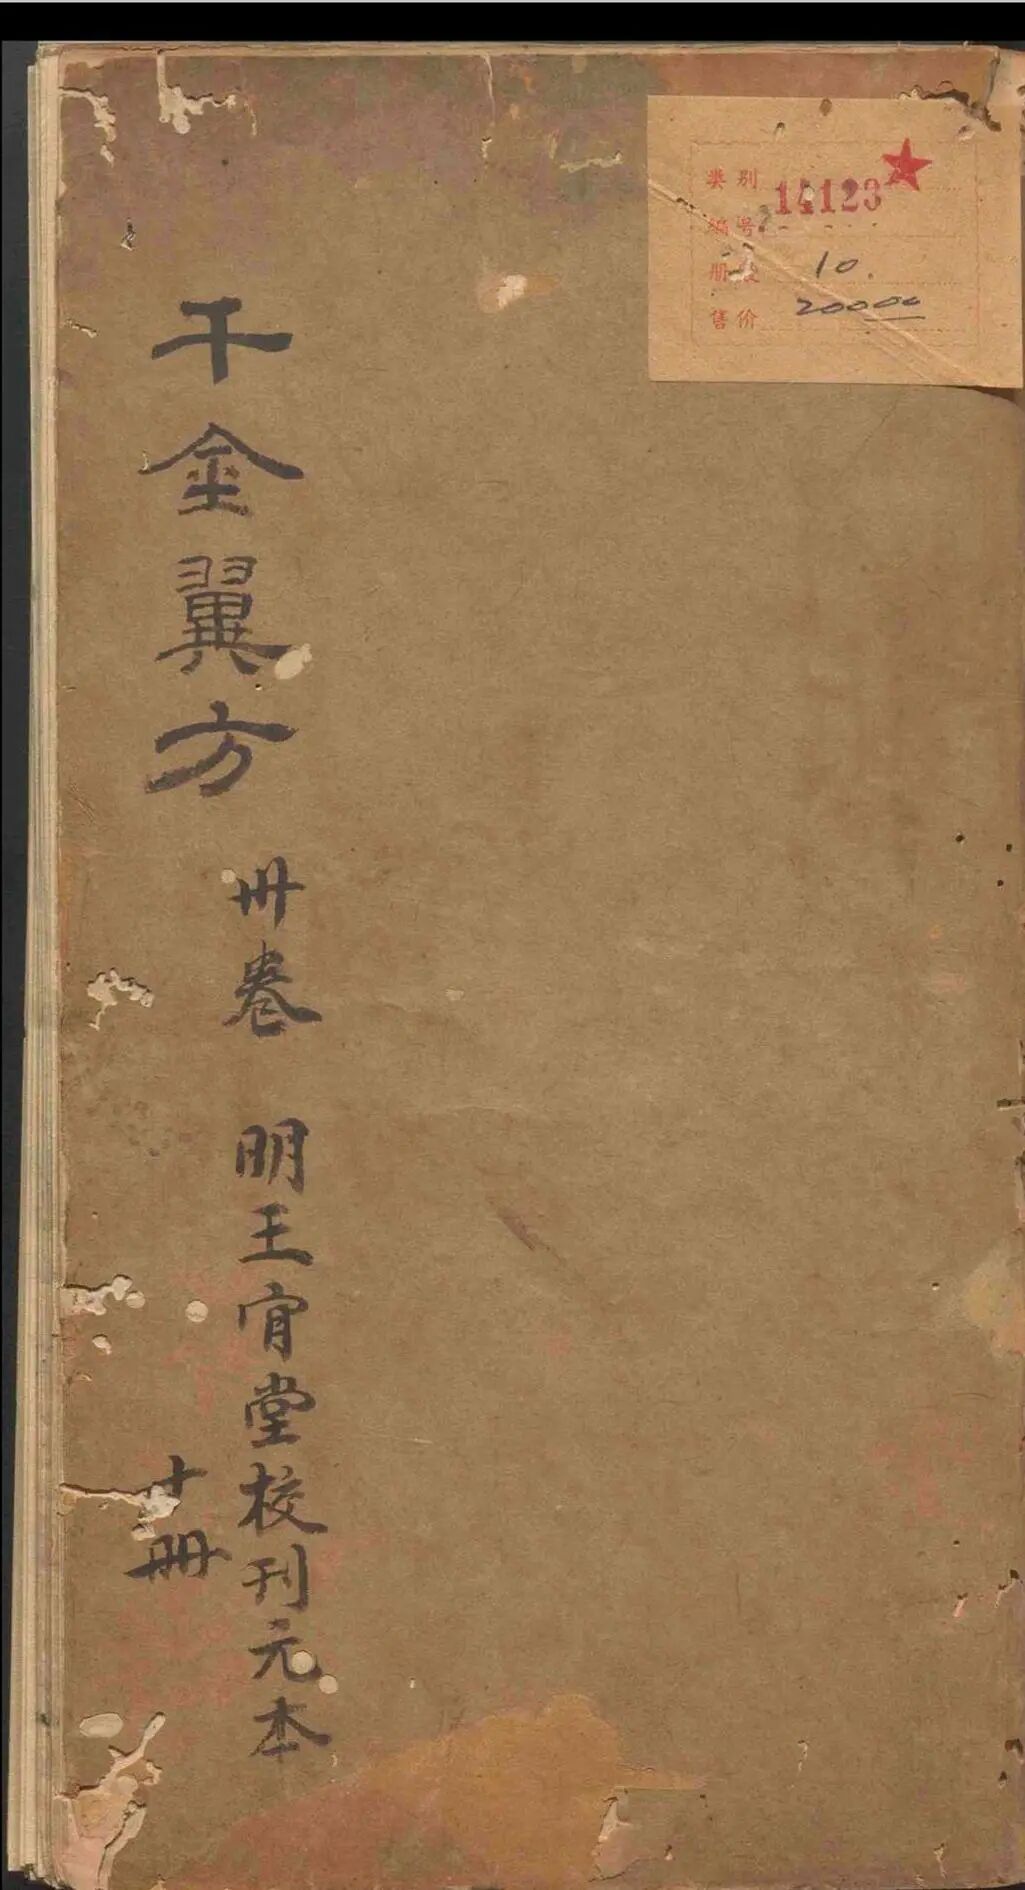 千金翼方
卅卷 明王肯堂校刊元本
十册
类别
14123
编号
册数 10.
售价 200.00